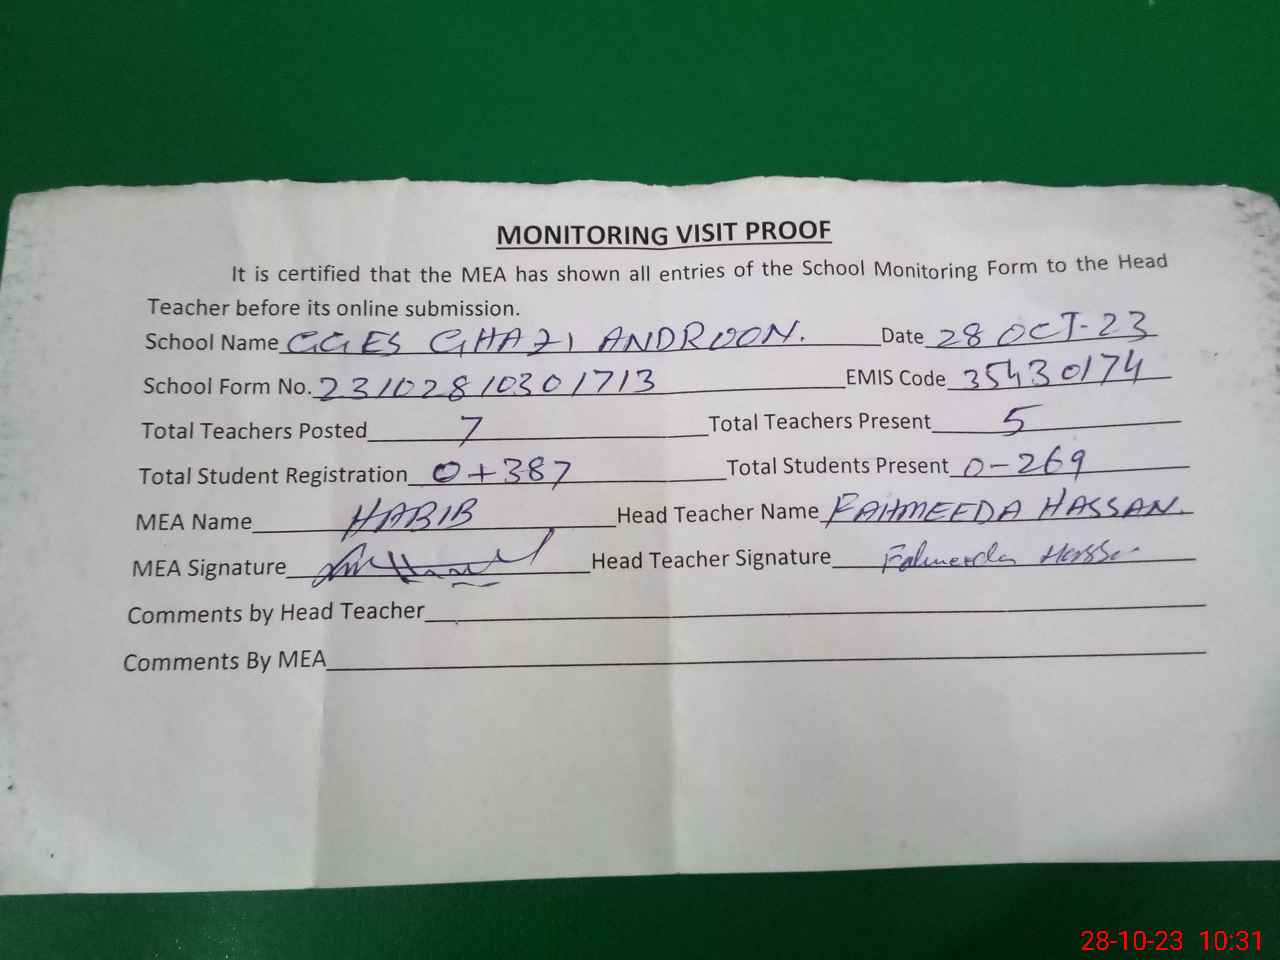 MONITORING VISIT PROOF
It is certified that the MEA has shown all entries of the School Monitoring Form to the Head
Teacher before its online submission.
School Name GGES GHAZI ANDROON. Date 28 OCT-23
School Form No. 23102810301713 EMIS Code 35430174
Total Teachers Posted 7 Total Teachers Present 5
Total Student Registration 0+387 Total Students Present 0-269
MEA Name HABIB Head Teacher Name FAHMEEDA HASSAN.
MEA Signature Head Teacher Signature Fahmeeda Hassan
Comments by Head Teacher
Comments By MEA
28-10-23 10:31